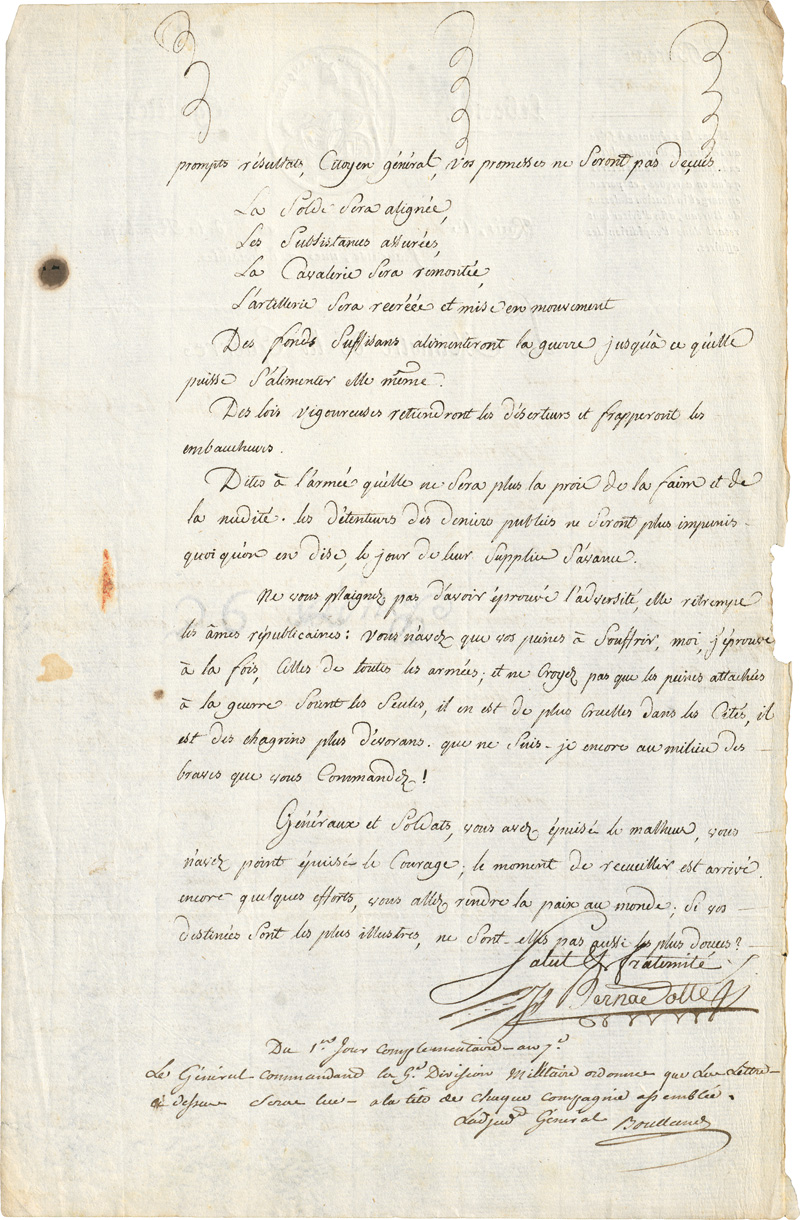 prompts résultats, Citoyen général, vos promesses ne seront pas deçues.
La Solde sera alignée,
Les Subsistances assurées,
La Cavalerie sera remontée,
L'artillerie sera recréée et mise en mouvement
Des fonds suffisans alimenteront la guerre jusqu'à ce qu'elle
puisse s'alimenter elle même.
Des lois vigoureuses retiendront les déserteurs et frapperont les
embaucheurs.
Dites à l'armée qu'elle ne sera plus la proie de la faim et de
la nudité. les détenteurs des deniers publics ne seront plus impunis -
quoiqu'on en dise, le jour de leur supplice s'avance.
Ne vous plaignez pas d'avoir éprouvé l'adversité, elle retrempe
les âmes républicaines: vous n'avez que vos peines à souffrir, moi, j'éprouve
à la fois, celles de toutes les armées; et ne croyez pas que les peines attachées
à la guerre soient les seules, il en est de plus cruelles dans les Cités, il
est des chagrins plus dévorans. que ne suis-je encore au milieu des
braves que vous commandez!
Généraux et Soldats, vous avez épuisé le malheur, vous
n'avez point épuisé le Courage; le moment de recueillir est arrivé.
encore quelques efforts, vous allez rendre la paix au monde; si vos
destinées sont les plus illustres, ne sont-elles pas aussi les plus douces?
Salut & fraternité
Bernadotte
Du 1er Jour complementaire an 7.e
Le Général commandand la Division Militaire ordonne que La Lettre
ci dessus Serae lue a la tête de chaque compagnie assemblée.
Ladjud.t Général Boulland